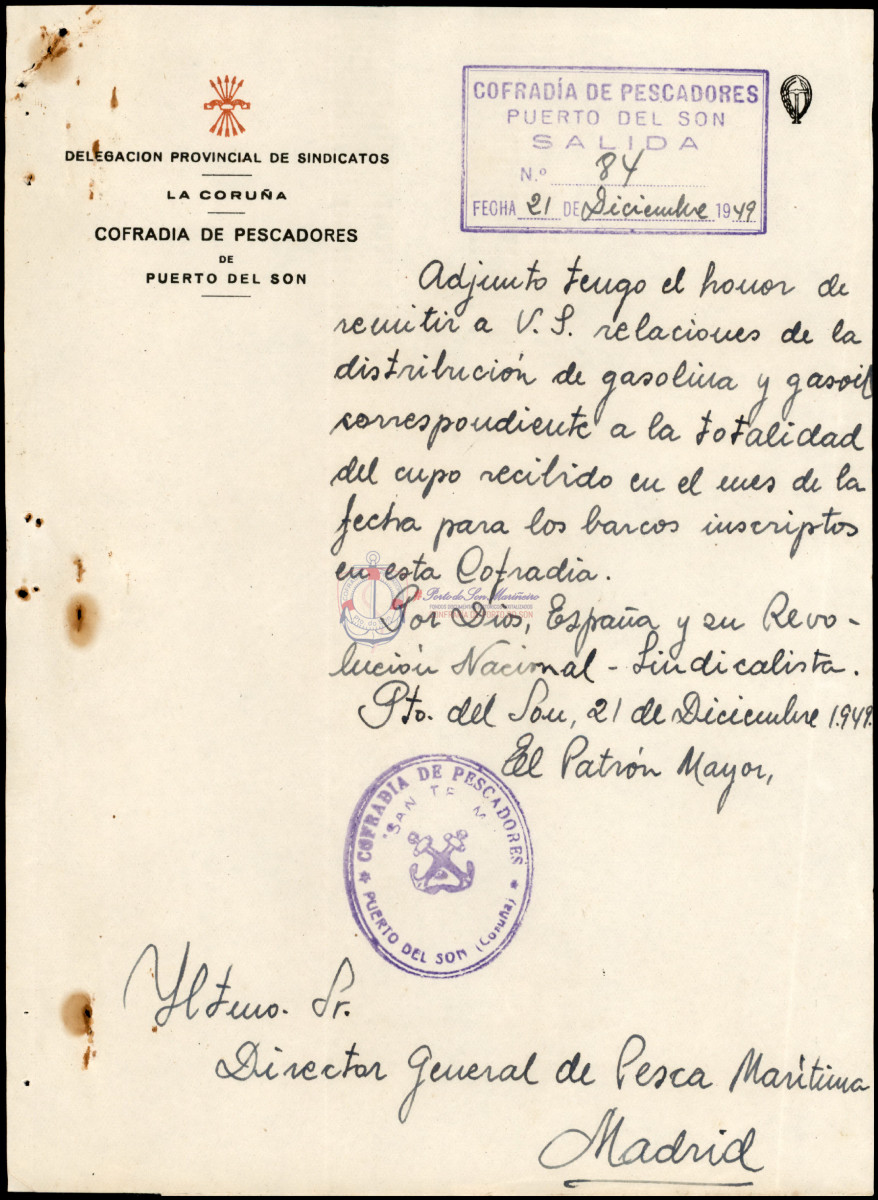 DELEGACION PROVINCIAL DE SINDICATOS
LA CORUÑA
COFRADIA DE PESCADORES
DE
PUERTO DEL SON
COFRADÍA DE PESCADORES
PUERTO DEL SON
SALIDA
N.º 84
FECHA 21 DE Diciembre 1949
Adjunto tengo el honor de
remitir a V. S. relaciones de la
distribución de gasolina y gasoil
correspondiente a la totalidad
del cupo recibido en el mes de la
fecha para los barcos inscriptos
en esta Cofradia.
Porto do Son Mariñeiro
Por Dios, España y su Revo-
lución Nacional-Sindicalista.
Pto. del Son, 21 de Diciembre 1.949.
El Patrón Mayor,
COFRADIA DE PESCADORES
"SAN TE M
PUERTO DEL SON (Coruña)
Yltmo. Sr.
Director General de Pesca Marítima
Madrid